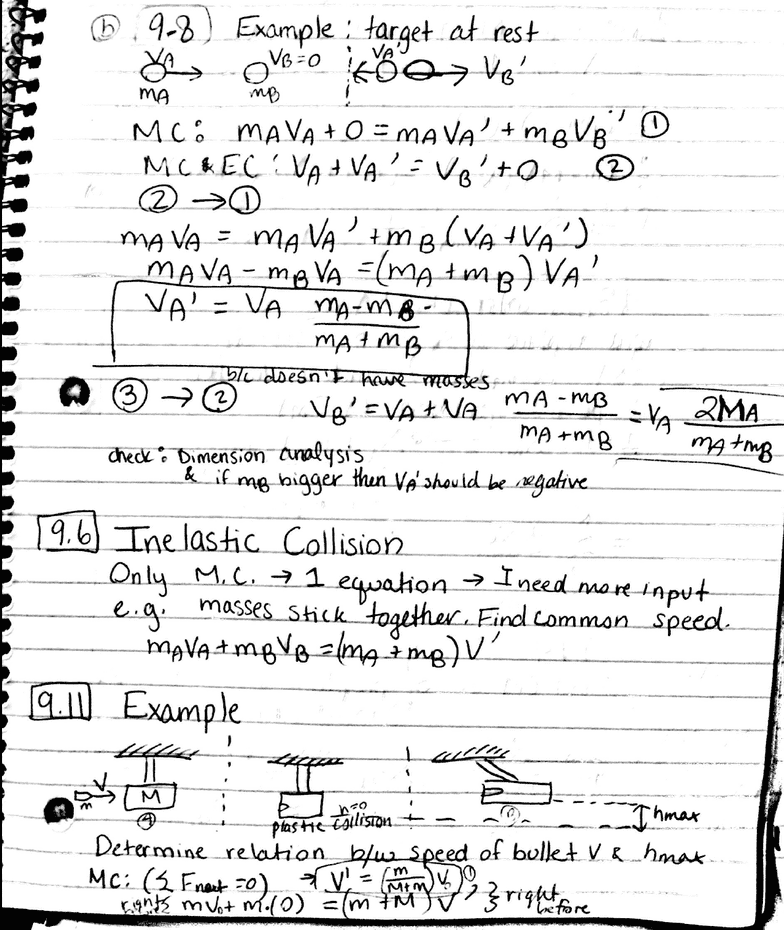 (b) 9-8 Example: target at rest
VA VB=0 VA' VB'
mA mB
MC: mAVA + 0 = mAVA' + mBVB' ①
MC & EC: VA + VA' = VB' + 0 ②
② → ①
mAVA = mAVA' + mB(VA + VA')
mAVA - mBVA = (mA + mB) VA'
VA' = VA (mA - mB)/(mA + mB)
b/c doesn't have masses
③ → ② VB' = VA + VA (mA - mB)/(mA + mB) = VA 2MA/(mA + mB)
check: Dimension analysis
& if mB bigger then VA' should be negative
9.6 Inelastic Collision
Only M.C. → 1 equation → I need more input
e.g. masses stick together. Find common speed.
mAVA + mBVB = (mA + mB) V'
9.11 Example
V
m M h=0 hmax
plastic collision
Determine relation b/w speed of bullet V & hmax
MC: (Σ Fnext = 0) → V' = (m/(M+m)) V0 ①
mV0 + m·(0) = (m + M) V' } right before